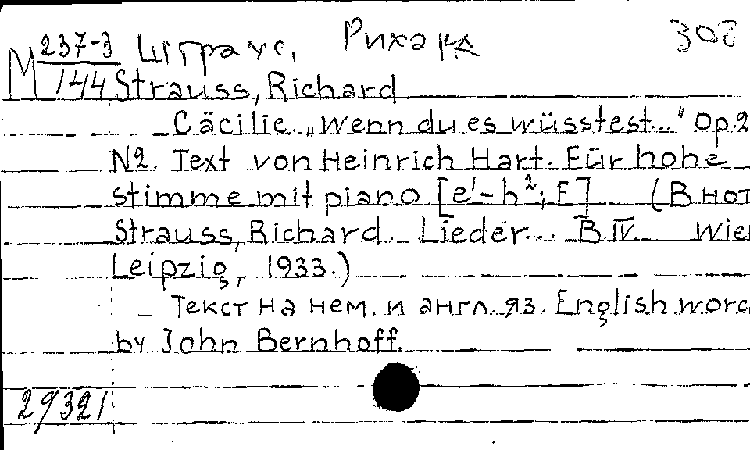 М 237-3 Штраус, Рихард 308
144 Strauss, Richard
Cäcilie „Wenn du es wüsstest..." Op.2
N2. Text von Heinrich Hart. Für hohe
stimme mit piano [e¹-h²; E] (В нот
Strauss, Richard. Lieder... B IV. Wien
Leipzig, 1933.)
Текст на нем. и англ. яз. English word
by John Bernhoff.
29321